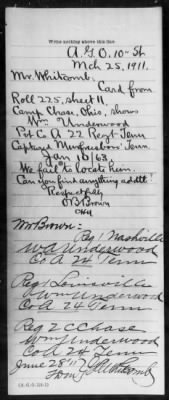 Write nothing above this line
A.G.O. 10th St
Mch 25, 1911.
Mr. Whitcomb.
Card from
Roll 225, sheet 11,
Camp Chase, Ohio, shows
Wm Underwood
Pvt Co A 22 Regt Tenn
Captured Murfreesboro Tenn.
Jan 10/63.
We fail to locate him.
Can you find anything addtl?
Respectfully
OB Brown
Mr Brown:
Reg 1 Nashville
W A Underwood
Co A 24 Tenn
Reg 1 Louisville
Wm Underwood
Co A 24 Tenn
Reg 2 C Chase
Wm Underwood
Co A 24 Tenn
June 28/11
Whitcomb